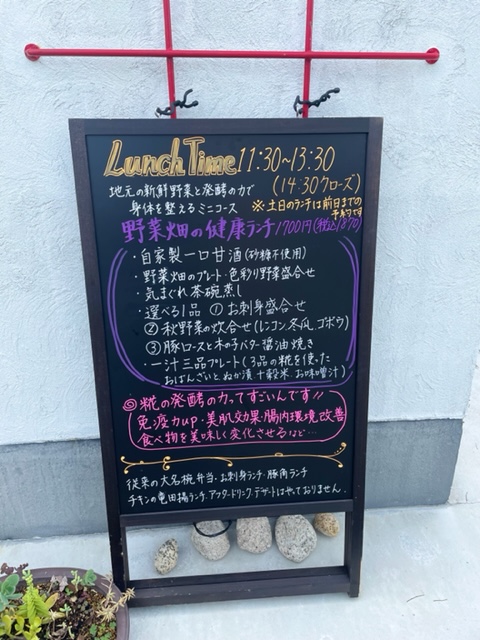 Lunch Time 11:30~13:30
(14:30クローズ)
地元の新鮮野菜と発酵の力で
身体を整えるミニコース
※土日のランチは前日までの
予約です
野菜畑の健康ランチ1700円(税込1870)
・自家製一口甘酒(砂糖不使用)
・野菜畑のプレート・色彩り野菜盛合せ
・気まぐれ茶碗蒸し
・選べる1品 ①お刺身盛合せ
②秋野菜の炊合せ(レンコン、冬瓜、ゴボウ)
③豚ロースと木の子バター醤油焼き
・一汁三品プレート(3品の糀を使った
おばんざいとぬか漬 十穀米 お味噌汁)
◎糀の発酵の力ってすごいんです!!
免疫力up・美肌効果・腸内環境改善
食べ物を美味しく変化させるほど…
従来の大名椀弁当・お刺身ランチ・豚角ランチ
チキンの竜田揚ランチ・アフタードリンク・デザートはやっておりません。